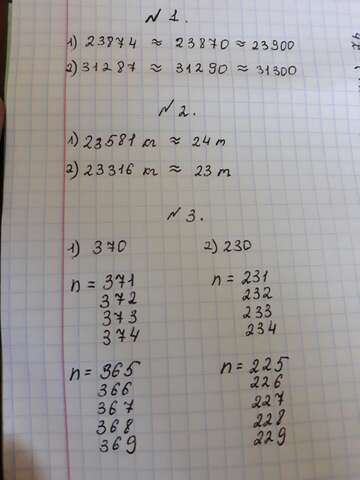 № 1.
1) 23874 ≈ 23870 ≈ 23900
2) 31287 ≈ 31290 ≈ 31300
№ 2.
1) 23581 кг ≈ 24 т
2) 23316 кг ≈ 23 т
№ 3.
1) 370
n = 371
372
373
374
n = 365
366
367
368
369
2) 230
n = 231
232
233
234
n = 225
226
227
228
229